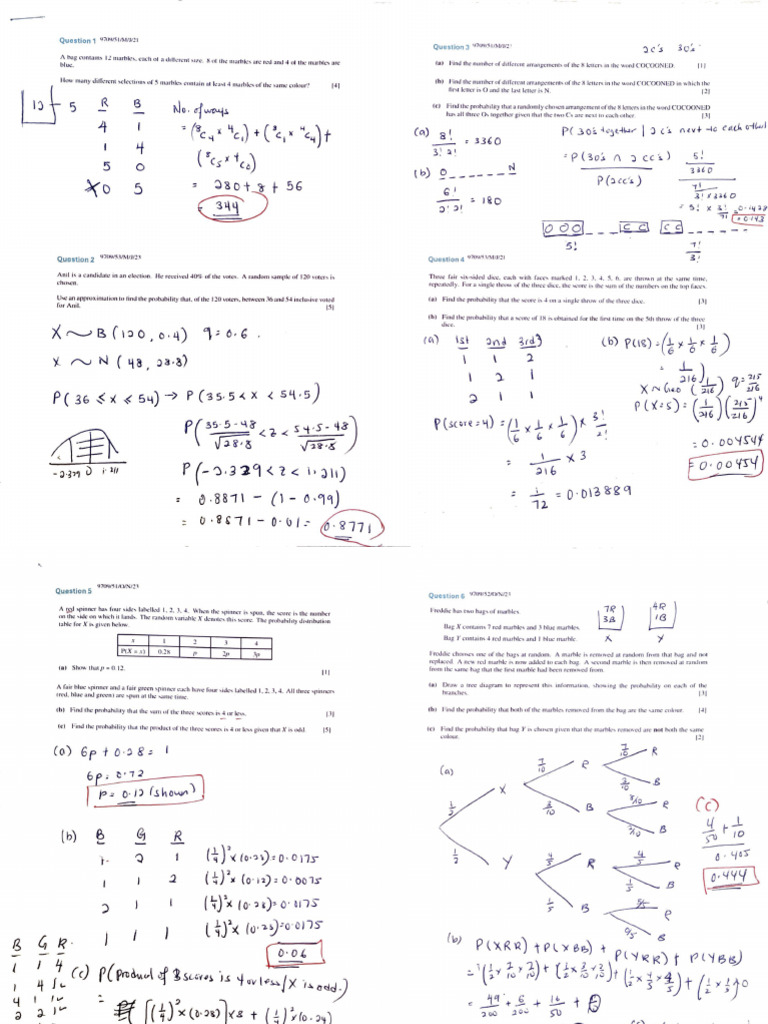 Question 1 9709/51/M/J/21
A bag contains 12 marbles, each of a different size. 8 of the marbles are red and 4 of the marbles are
blue.
How many different selections of 5 marbles contain at least 4 marbles of the same colour? [4]
12 5 R B No. of ways
4 1 = (⁸C₄ × ⁴C₁) + (⁸C₁ × ⁴C₄) +
1 4 (⁸C₅ × ⁴C₀)
5 0 = 280 + 8 + 56
X 0 5 = 344
Question 2 9709/53/M/J/23
Anil is a candidate in an election. He received 40% of the votes. A random sample of 120 voters is
chosen.
Use an approximation to find the probability that, of the 120 voters, between 36 and 54 inclusive voted
for Anil. [5]
X ~ B(120, 0.4) q = 0.6.
X ~ N(48, 28.8)
P(36 ≤ X ≤ 54) → P(35.5 < X < 54.5)
P(35.5-48/√28.8 < Z < 54.5-48/√28.8)
-2.329 0 1.211
P(-2.329 < Z < 1.211)
= 0.8871 - (1 - 0.99)
= 0.8871 - 0.01 = 0.8771
Question 3 9709/51/M/J/2
2C's 3O's
(a) Find the number of different arrangements of the 8 letters in the word COCOONED. [1]
(b) Find the number of different arrangements of the 8 letters in the word COCOONED in which the
first letter is O and the last letter is N. [2]
(c) Find the probability that a randomly chosen arrangement of the 8 letters in the word COCOONED
has all three Os together given that the two Cs are next to each other. [3]
(a) 8!/3!2! = 3360
P(3O's together | 2C's next to each other)
= P(3O's ∩ 2CC's)/P(2CC's)
5!/3360
7!/3! × 3360
= 5! × 3!/7! = 0.1428
= 0.143
(b) O _ _ _ _ _ _ N
6!/2!2! = 180
OOO _ _ _ CC
5!
CC
7!/3!
Question 4 9709/53/M/J/21
Three fair six-sided dice, each with faces marked 1, 2, 3, 4, 5, 6, are thrown at the same time,
repeatedly. For a single throw of the three dice, the score is the sum of the numbers on the top faces.
(a) Find the probability that the score is 4 on a single throw of the three dice. [3]
(b) Find the probability that a score of 18 is obtained for the first time on the 5th throw of the three
dice. [3]
(a) 1st 2nd 3rd
1 1 2
1 2 1
2 1 1
P(score=4) = (1/6 × 1/6 × 1/6) × 3!/2!
= 1/216 × 3
= 1/72 = 0.013889
(b) P(18) = (1/6 × 1/6 × 1/6)
= 1/216
X ~ Geo(1/216) q = 215/216
P(X=5) = (1/216)(215/216)⁴
= 0.004544
= 0.00454
Question 5 9709/51/O/N/23
A red spinner has four sides labelled 1, 2, 3, 4. When the spinner is spun, the score is the number
on the side on which it lands. The random variable X denotes this score. The probability distribution
table for X is given below.
x 1 2 3 4
P(X = x) 0.28 p 2p 3p
(a) Show that p = 0.12. [1]
A fair blue spinner and a fair green spinner each have four sides labelled 1, 2, 3, 4. All three spinners
(red, blue and green) are spun at the same time.
(b) Find the probability that the sum of the three scores is 4 or less. [3]
(c) Find the probability that the product of the three scores is 4 or less given that X is odd. [5]
(a) 6p + 0.28 = 1
6p = 0.72
p = 0.12 (shown)
(b) B G R
1 2 1 (1/4)² × (0.28) = 0.0175
1 1 2 (1/4)² × (0.12) = 0.0075
2 1 1 (1/4)² × (0.28) = 0.0175
1 1 1 (1/4)² × (0.28) = 0.0175
0.06
B G R
1 1 4
(c) P(product of 3 scores is 4 or less | X is odd.)
= [(1/4)² × (0.28)] × 8 + (1/4)² × (0.24)
Question 6 9709/52/O/N/21
Freddie has two bags of marbles.
Bag X contains 7 red marbles and 3 blue marbles.
Bag Y contains 4 red marbles and 1 blue marble.
7R 3B X
4R 1B Y
Freddie chooses one of the bags at random. A marble is removed at random from that bag and not
replaced. A new red marble is now added to each bag. A second marble is then removed at random
from the same bag that the first marble had been removed from.
(a) Draw a tree diagram to represent this information, showing the probability on each of the
branches. [3]
(b) Find the probability that both of the marbles removed from the bag are the same colour. [4]
(c) Find the probability that bag Y is chosen given that the marbles removed are not both the same
colour. [2]
(a)
1/2 X 7/10 R 7/10 R
3/10 B
3/10 B R
B
1/2 Y 4/5 R 4/5 R
1/5 B
1/5 B R
B
(c)
4/50 + 1/10
0.405
0.444
(b) P(XRR) + P(XBB) +
P(YRR) + P(YBB)
= 49/200 + 6/200 + 16/50 +